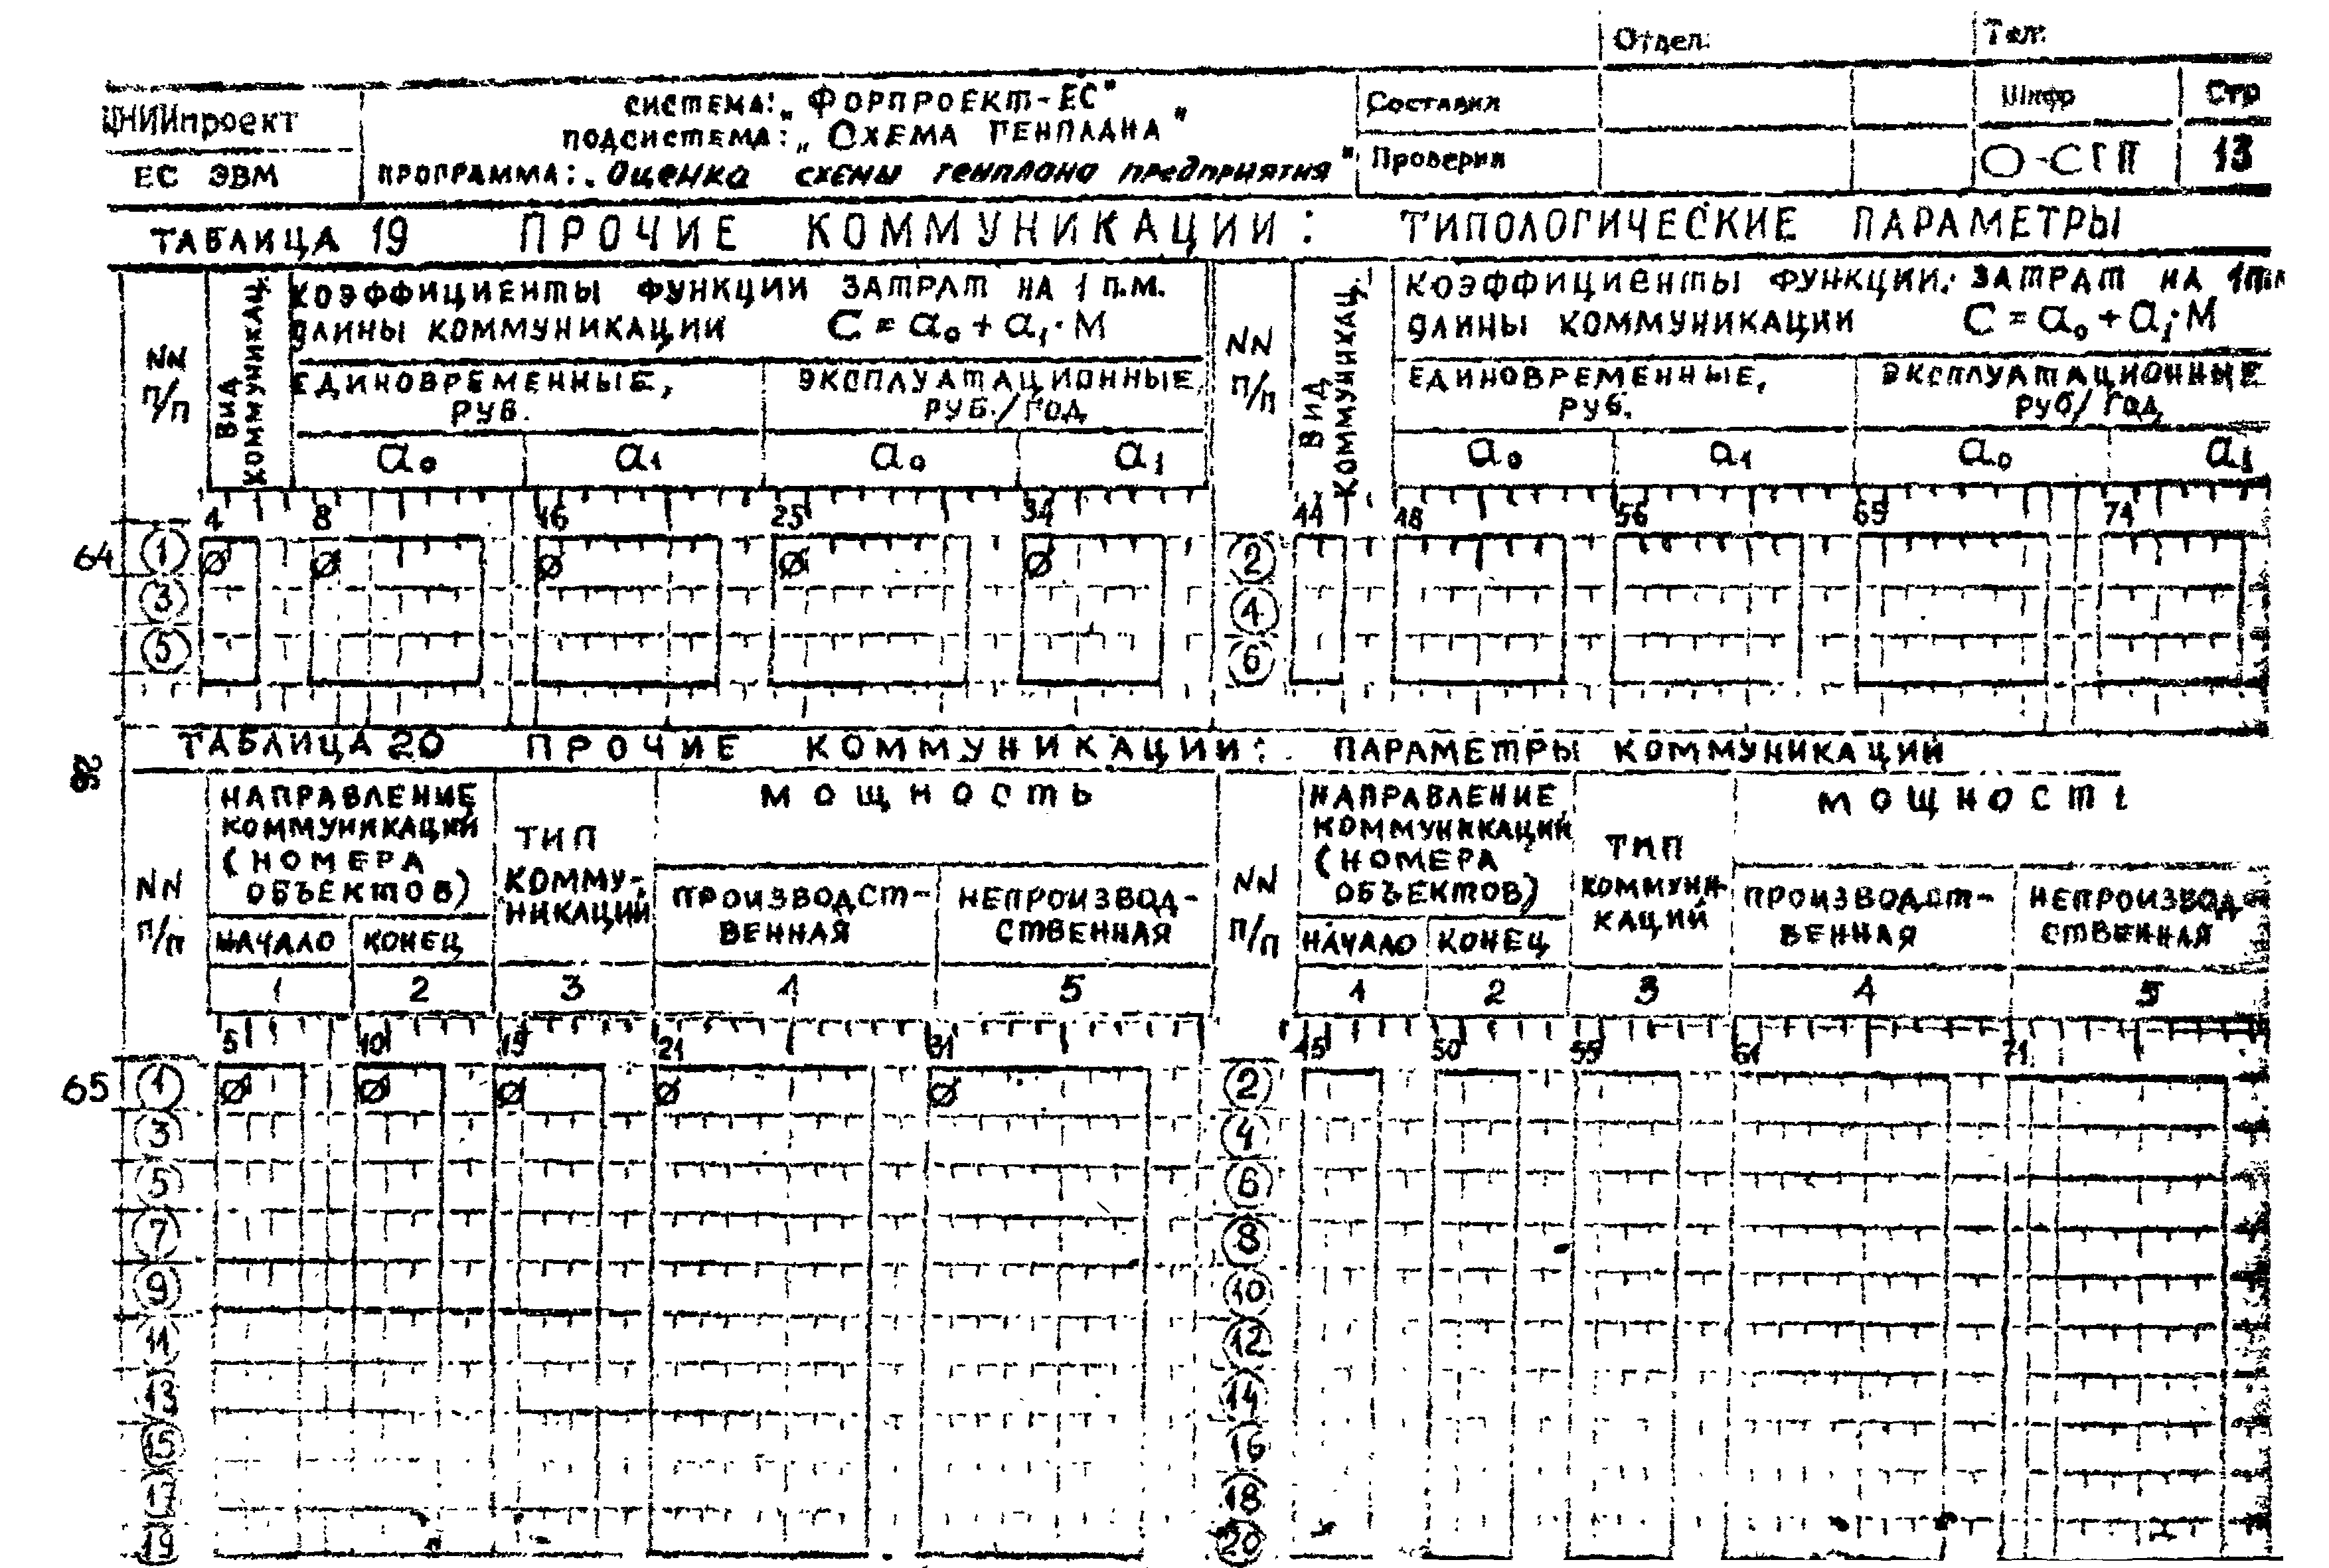 Отдел: Тел:
ЦНИИпроект
ЕС ЭВМ
СИСТЕМА: „ФОРПРОЕКТ-ЕС"
ПОДСИСТЕМА: „СХЕМА ГЕНПЛАНА"
ПРОГРАММА: „Оценка схемы генплана предприятия"
Составил Шифр Стр
Проверил О-СГП 13
ТАБЛИЦА 19 ПРОЧИЕ КОММУНИКАЦИИ: ТИПОЛОГИЧЕСКИЕ ПАРАМЕТРЫ
NN П/П
ВИД КОММУНИКАЦ.
КОЭФФИЦИЕНТЫ ФУНКЦИИ ЗАТРАТ НА 1 П.М.
ДЛИНЫ КОММУНИКАЦИИ C = a₀ + a₁·M
ЕДИНОВРЕМЕННЫЕ, РУБ.
ЭКСПЛУАТАЦИОННЫЕ, РУБ./ГОД
a₀ a₁ a₀ a₁
NN П/П
ВИД КОММУНИКАЦ.
КОЭФФИЦИЕНТЫ ФУНКЦИИ ЗАТРАТ НА 1П.М
ДЛИНЫ КОММУНИКАЦИИ C = a₀ + a₁·M
ЕДИНОВРЕМЕННЫЕ, РУБ.
ЭКСПЛУАТАЦИОННЫЕ РУБ/ГОД
a₀ a₁ a₀ a₁
4 8 16 25 34 44 48 56 65 74
64 1 Ø Ø Ø Ø Ø 2
3 4
5 6
26
ТАБЛИЦА 20 ПРОЧИЕ КОММУНИКАЦИИ: ПАРАМЕТРЫ КОММУНИКАЦИЙ
NN П/П
НАПРАВЛЕНИЕ
КОММУНИКАЦИЙ
(НОМЕРА
ОБЪЕКТОВ)
НАЧАЛО КОНЕЦ
ТИП
КОММУ-
НИКАЦИЙ
МОЩНОСТЬ
ПРОИЗВОДСТ-
ВЕННАЯ
НЕПРОИЗВОД-
СТВЕННАЯ
1 2 3 4 5
NN П/П
НАПРАВЛЕНИЕ
КОММУНИКАЦИЙ
(НОМЕРА
ОБЪЕКТОВ)
НАЧАЛО КОНЕЦ
ТИП
КОММУНИ-
КАЦИЙ
МОЩНОСТЬ
ПРОИЗВОДСТ-
ВЕННАЯ
НЕПРОИЗВОД-
СТВЕННАЯ
1 2 3 4 5
5 10 15 21 31 45 50 55 61 71
65 1 Ø Ø Ø Ø Ø 2
3 4
5 6
7 8
9 10
11 12
13 14
15 16
17 18
19 20